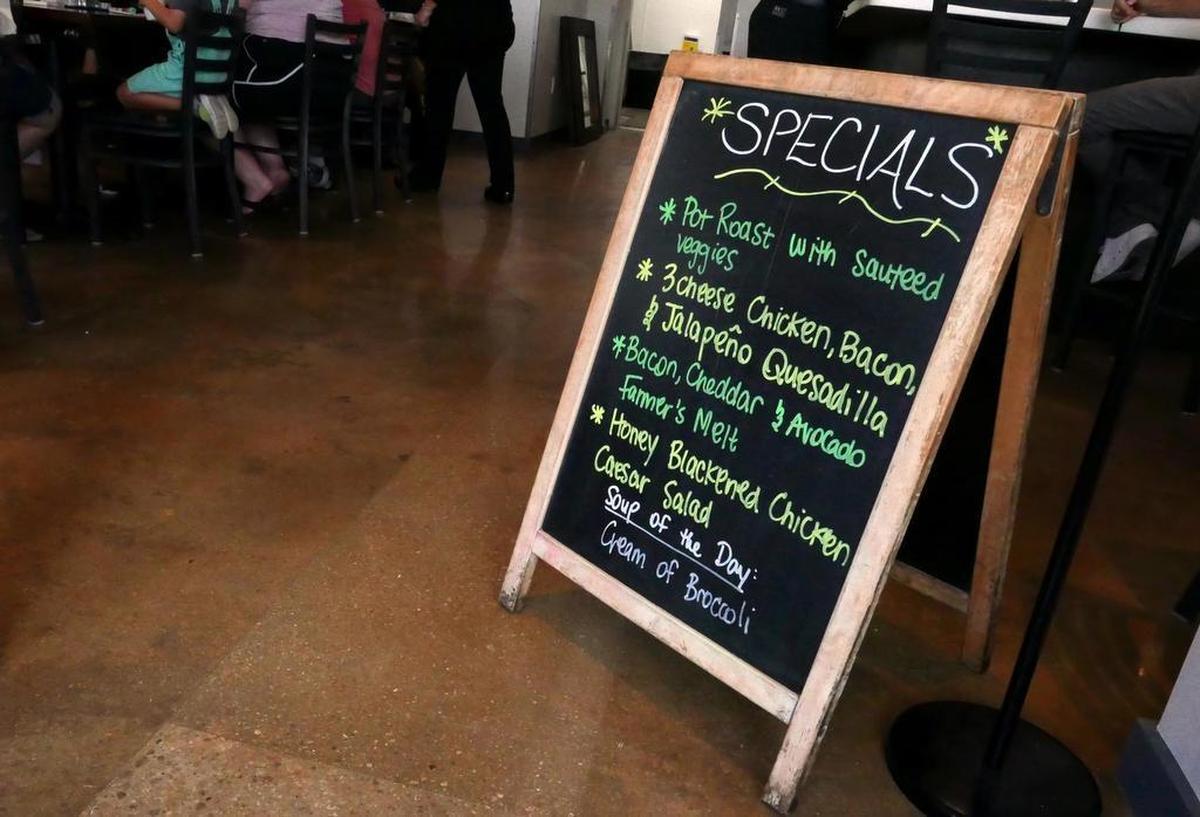 *SPECIALS*
* Pot Roast with sauteed
veggies
* 3 cheese Chicken, Bacon,
& Jalapeño Quesadilla
* Bacon, Cheddar & Avocado
Farmer's Melt
* Honey Blackened Chicken
Caesar Salad
Soup of the Day:
Cream of Broccoli